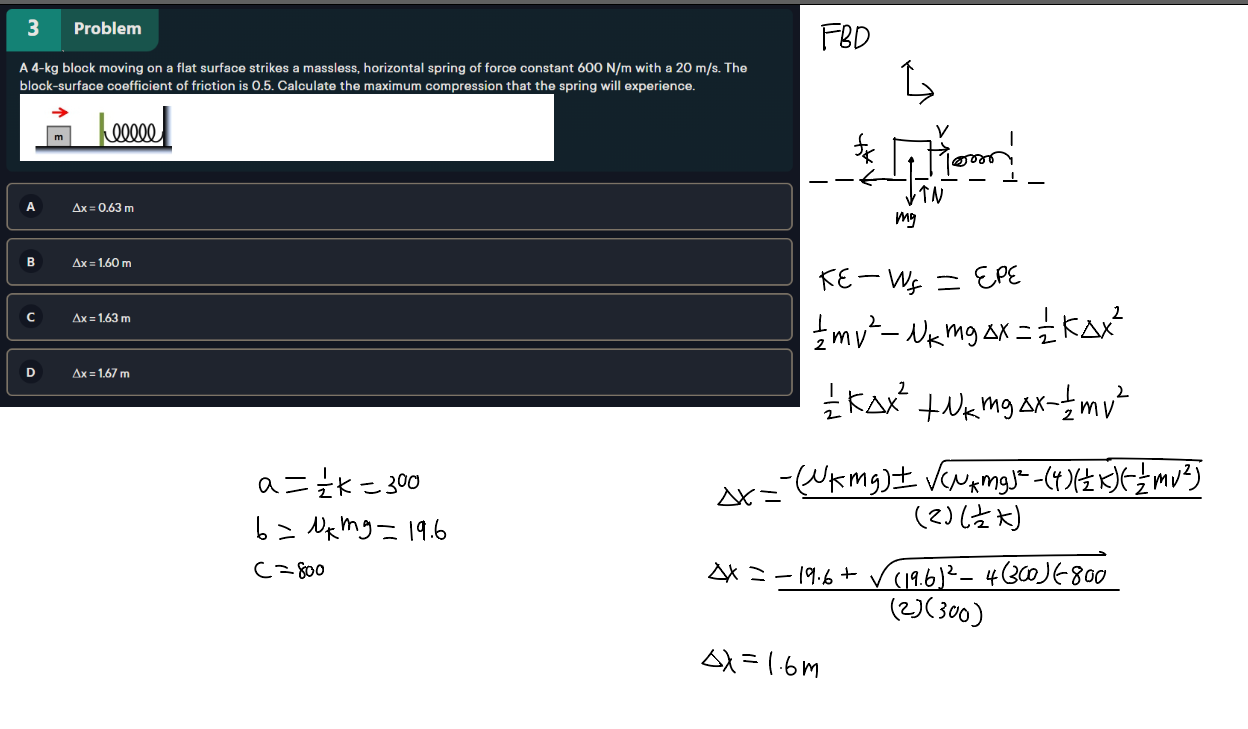 3 Problem
A 4-kg block moving on a flat surface strikes a massless, horizontal spring of force constant 600 N/m with a 20 m/s. The
block-surface coefficient of friction is 0.5. Calculate the maximum compression that the spring will experience.
m
A Δx = 0.63 m
B Δx = 1.60 m
C Δx = 1.63 m
D Δx = 1.67 m
FBD
fk
V
N
mg
KE - Wf = EPE
½mv² - μk mg Δx = ½ K Δx²
½ K Δx² + μk mg Δx - ½ mv²
a = ½ k = 300
b = μk mg = 19.6
c = 800
Δx = -(μk mg) ± √(μk mg)² - (4)(½ k)(-½ mv²)
(2)(½ k)
Δx = -19.6 + √(19.6)² - 4(300)(-800
(2)(300)
Δx = 1.6 m